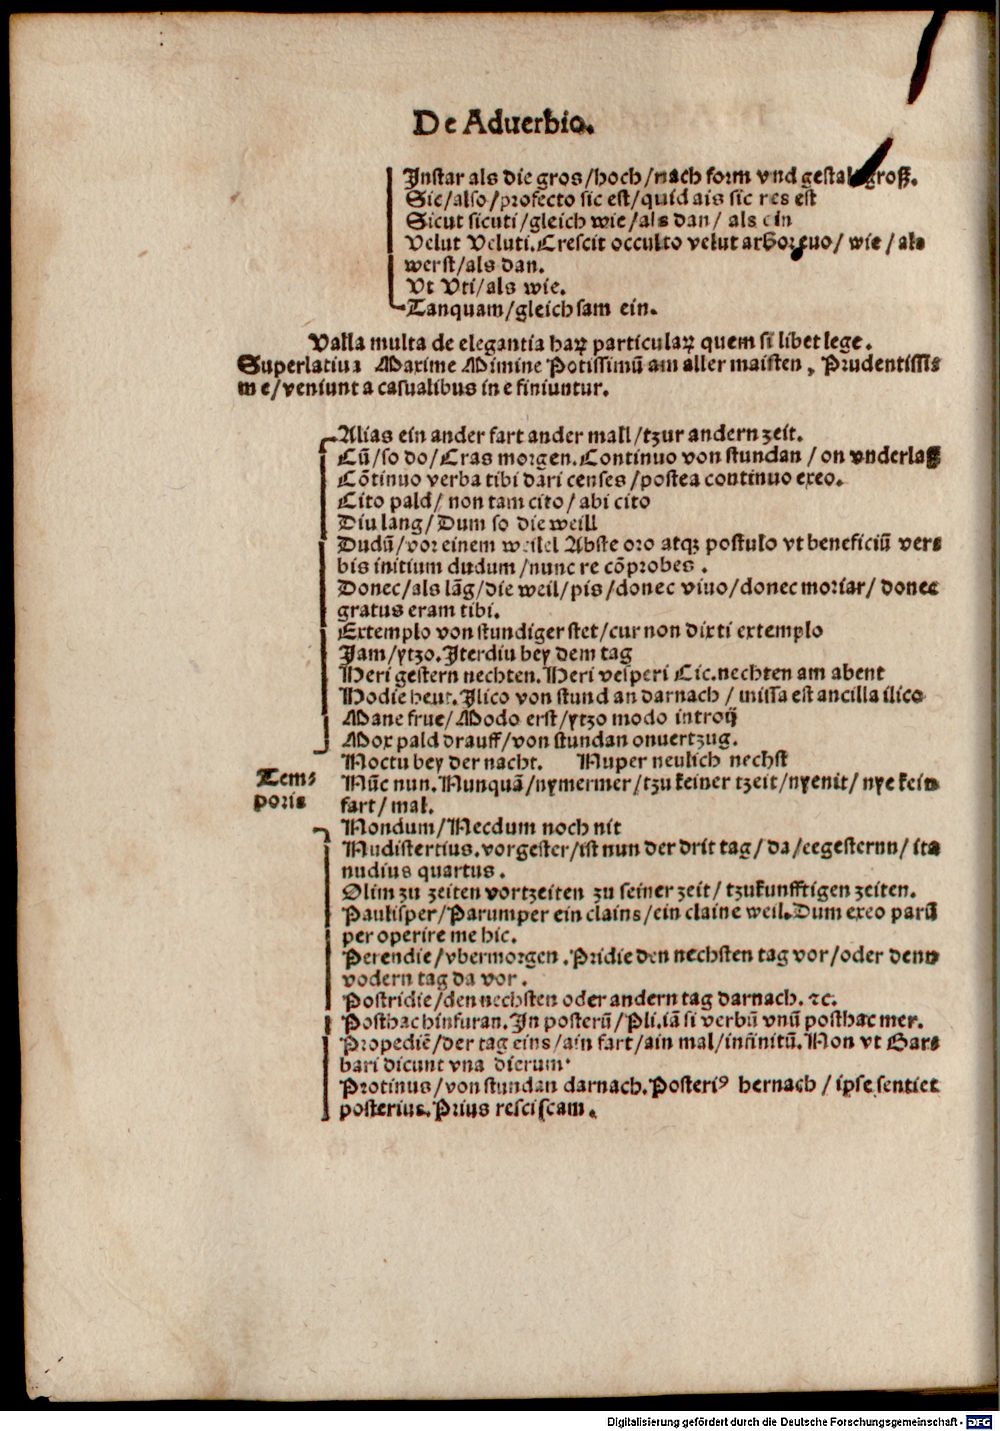 De Aduerbio.
Instar als die gros/hoch/nach form vnd gestalt groß.
Sic/also/profecto sic est/quid ais sic res est
Sicut sicuti/gleich wie/als dan/ als ein
Velut Veluti.Crescit occulto velut arbor euo/ wie / als
werst/als dan.
Vt Vti/als wie.
Tanquam/gleich sam ein.
Valla multa de elegantia haꝝ particulaꝝ quem si libet lege.
Superlatiua Maxime Minime Potissimū am aller maisten , Prudentissis
me/veniunt a casualibus in e finiuntur.
Alias ein ander fart ander mall/tzur andern zeit.
Cū/so do/Cras morgen.Continuo von stundan / on vnderlaß
Cōtinuo verba tibi dari censes /postea continuo exeo.
Cito pald/ non tam cito / abi cito
Diu lang/Dum so die weill
Dudū/vor einem weilel Abste oro atqꝫ postulo vt beneficiū vers
bis initium dudum /nunc re cōprobes .
Donec/als lāg/die weil/pis/donec viuo/donec moriar/ donec
gratus eram tibi.
Extemplo von stundiger stet/cur non dixti extemplo
Jam/ytzo.Iterdiu bey dem tag
Heri gestern nechten.Heri vesperi Cic.nechten am abent
Hodie heut.Ilico von stund an darnach / missa est ancilla ilico
Mane frue/Modo erst/ytzo modo introij
Mox pald drauff/von stundan onuertzug.
Noctu bey der nacht. Nuper neulich nechst
Tem-
poris
Nūc nun.Nunquā/nymermer/tzu keiner tzeit/nyenit/ nye kein
fart/ mal.
Nondum/Necdum noch nit
Nudistertius.vorgester/ist nun der drit tag/ da/eegesternn/ ita
nudius quartus .
Olim zu zeiten vortzeiten zu seiner zeit/ tzukunfftigen zeiten.
Paulisper/Parumper ein clains/ein claine weil.Dum exeo parū
per operire me hic.
Perendie/vbermorgen .Pridie den nechsten tag vor/oder denn
vodern tag da vor .
Postridie/den nechsten oder andern tag darnach. ⁊c.
Posthac hinfuran.In posterū/Pli.iā si verbū vnū posthac mer.
Propediē/der tag eins/ain fart/ain mal/infinitū.Non vt Bars
bari dicunt vna dierum·
Protinus/von stundan darnach.Posteriꝰ hernach / ipse sentiet
posterius.Prius resciscam .
Digitalisierung gefördert durch die Deutsche Forschungsgemeinschaft - DFG